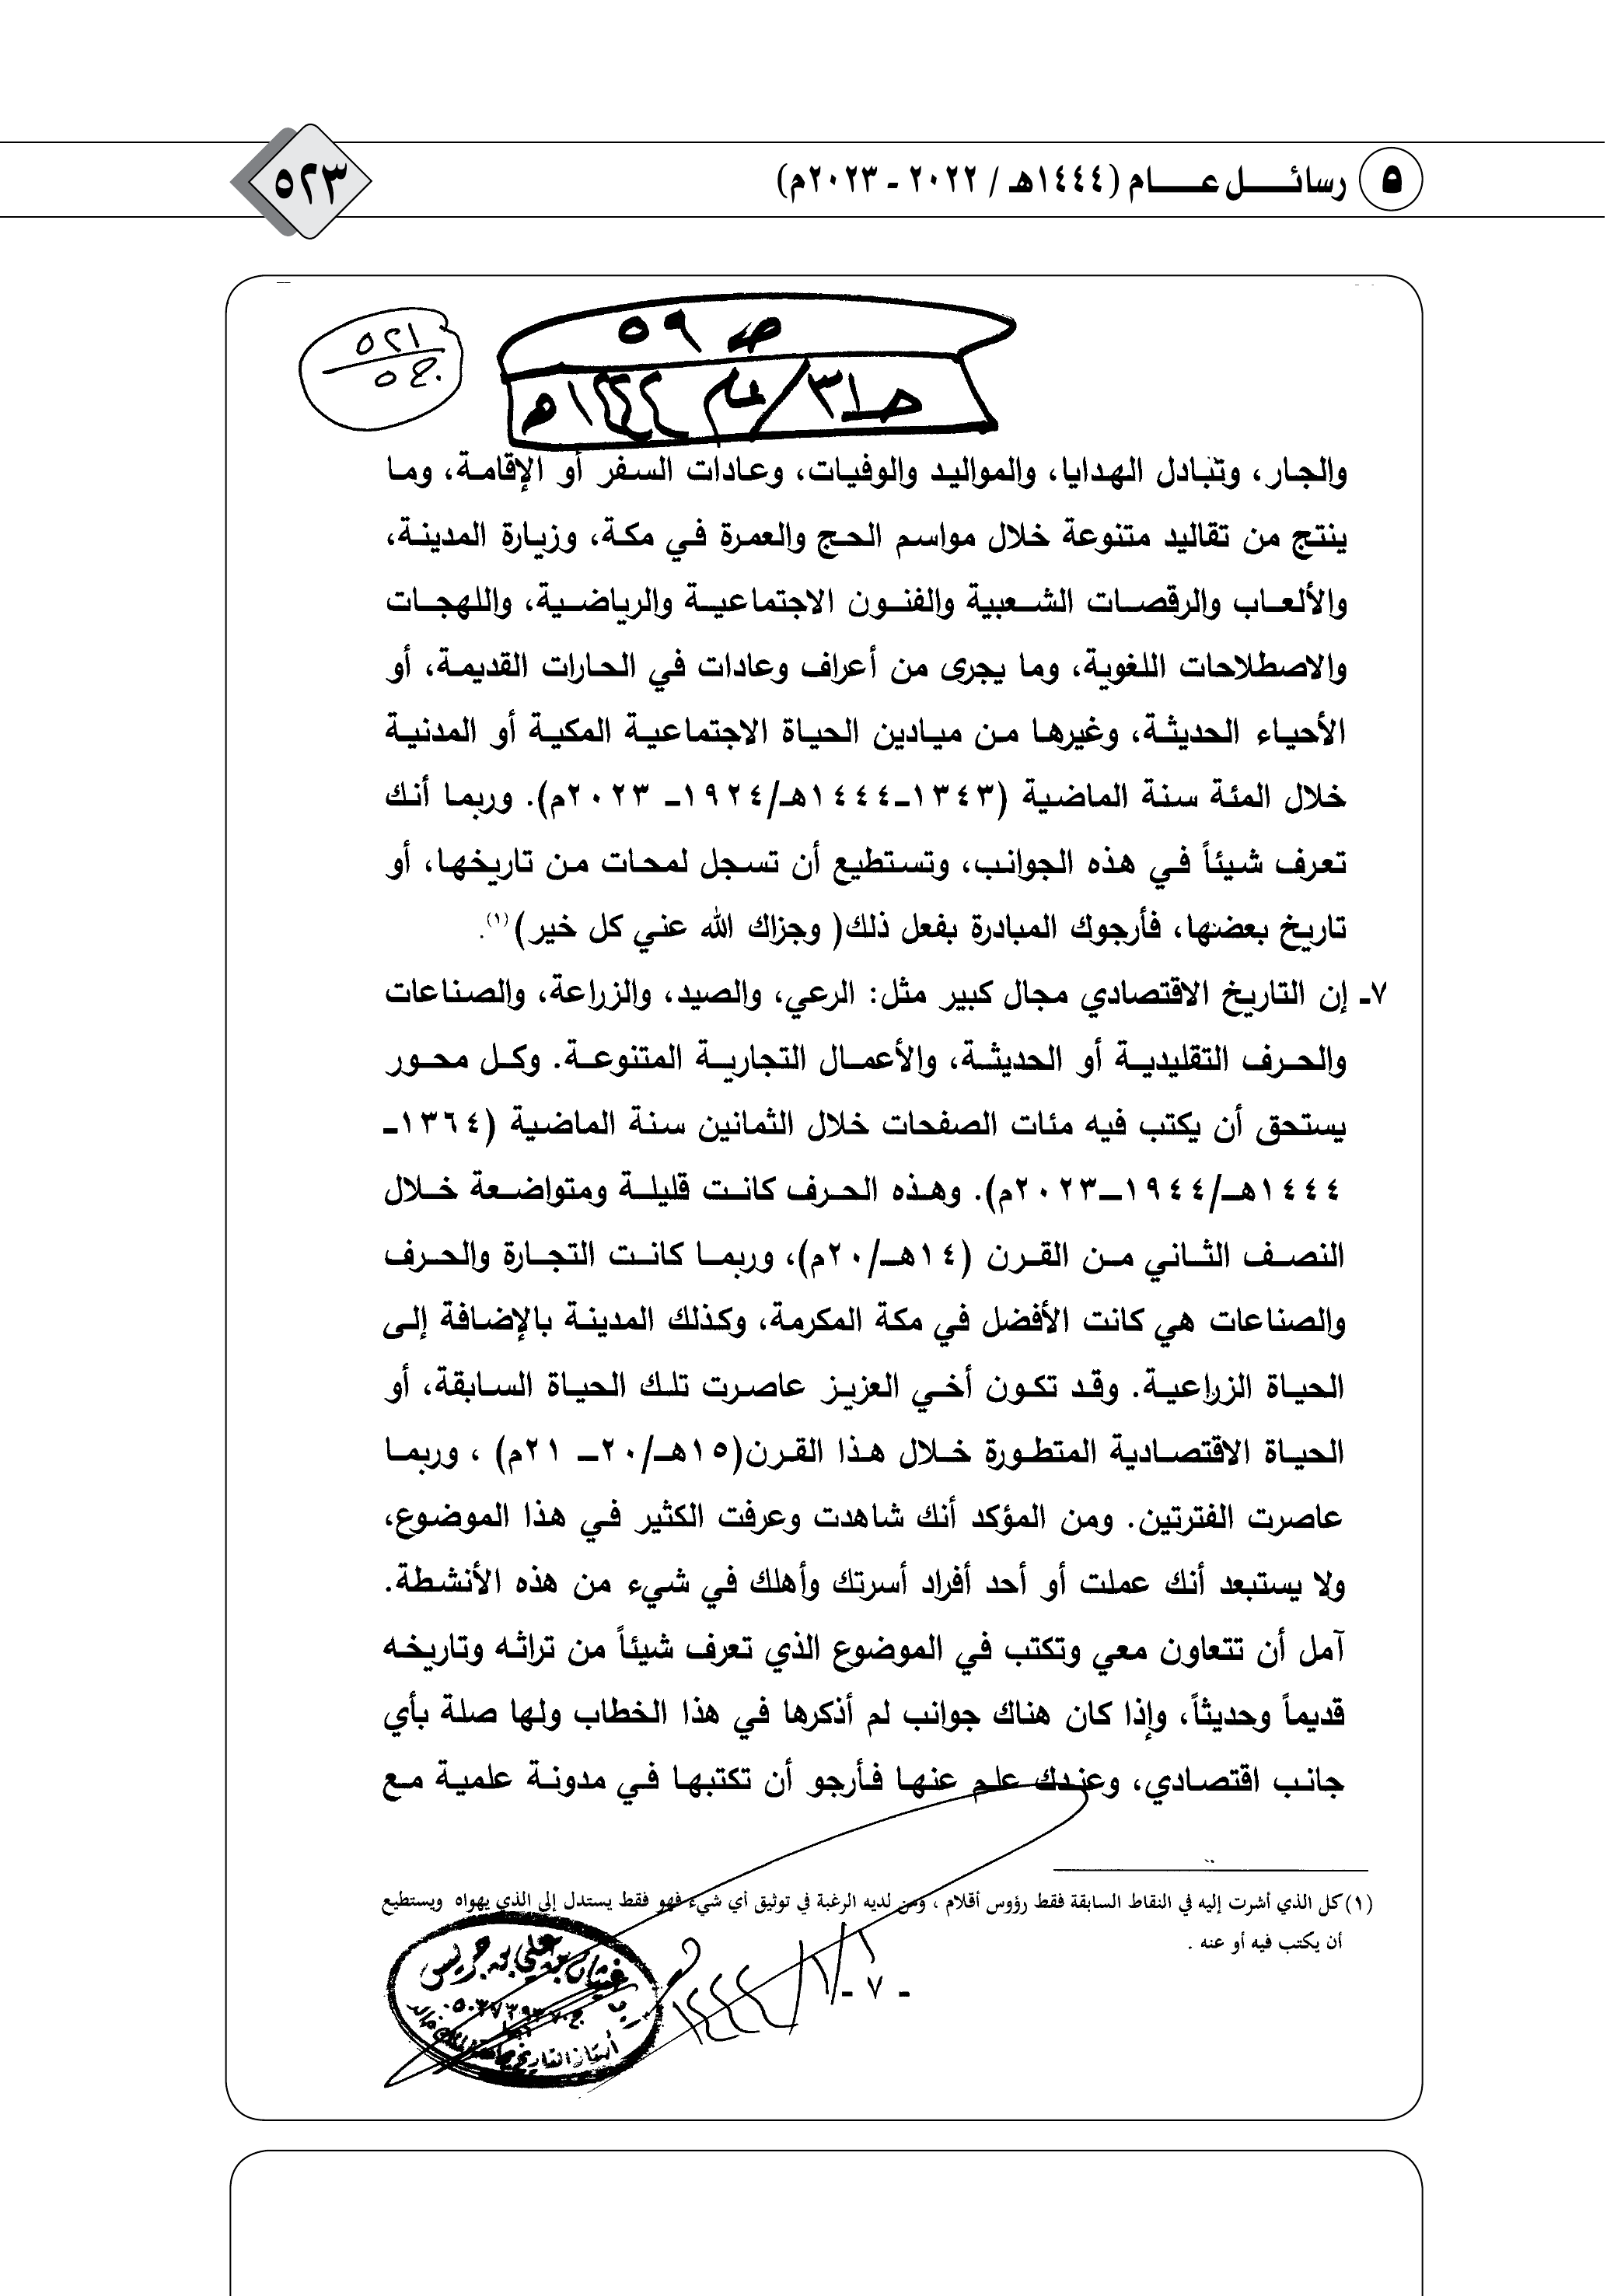 ٥ رسائل عام (١٤٤٤هـ / ٢٠٢٢ - ٢٠٢٣م)
٥٢٣
ص ٥٩
٥٢١
ج٥
ص٣١/ عام ١٤٤٤هـ
والجار، وتبادل الهدايا، والمواليد والوفيات، وعادات السفر أو الإقامة، وما
ينتج من تقاليد متنوعة خلال مواسم الحج والعمرة في مكة، وزيارة المدينة،
والألعاب والرقصات الشعبية والفنون الاجتماعية والرياضية، واللهجات
والاصطلاحات اللغوية، وما يجرى من أعراف وعادات في الحارات القديمة، أو
الأحياء الحديثة، وغيرها من ميادين الحياة الاجتماعية المكية أو المدنية
خلال المئة سنة الماضية (١٣٤٣ـ١٤٤٤هـ/١٩٢٤ـ ٢٠٢٣م). وربما أنك
تعرف شيئاً في هذه الجوانب، وتستطيع أن تسجل لمحات من تاريخها، أو
تاريخ بعضها، فأرجوك المبادرة بفعل ذلك( وجزاك الله عني كل خير)(١).
٧ـ إن التاريخ الاقتصادي مجال كبير مثل: الرعي، والصيد، والزراعة، والصناعات
والحرف التقليدية أو الحديثة، والأعمال التجارية المتنوعة. وكل محور
يستحق أن يكتب فيه مئات الصفحات خلال الثمانين سنة الماضية (١٣٦٤ـ
١٤٤٤هـ/١٩٤٤ــ٢٠٢٣م). وهذه الحرف كانت قليلة ومتواضعة خلال
النصف الثاني من القرن (١٤هـ/٢٠م)، وربما كانت التجارة والحرف
والصناعات هي كانت الأفضل في مكة المكرمة، وكذلك المدينة بالإضافة إلى
الحياة الزراعية. وقد تكون أخي العزيز عاصرت تلك الحياة السابقة، أو
الحياة الاقتصادية المتطورة خلال هذا القرن(١٥هـ/٢٠ــ ٢١م) ، وربما
عاصرت الفترتين. ومن المؤكد أنك شاهدت وعرفت الكثير في هذا الموضوع،
ولا يستبعد أنك عملت أو أحد أفراد أسرتك وأهلك في شيء من هذه الأنشطة.
آمل أن تتعاون معي وتكتب في الموضوع الذي تعرف شيئاً من تراثه وتاريخه
قديماً وحديثاً، وإذا كان هناك جوانب لم أذكرها في هذا الخطاب ولها صلة بأي
جانب اقتصادي، وعندك علم عنها فأرجو أن تكتبها في مدونة علمية مع
(١) كل الذي أشرت إليه في النقاط السابقة فقط رؤوس أقلام ، ومن لديه الرغبة في توثيق أي شيء فهو فقط يستدل إلى الذي يهواه ويستطيع
أن يكتب فيه أو عنه .
ـ ٧ ـ
غيثان بن علي بن جريس
أستاذ التاريخ